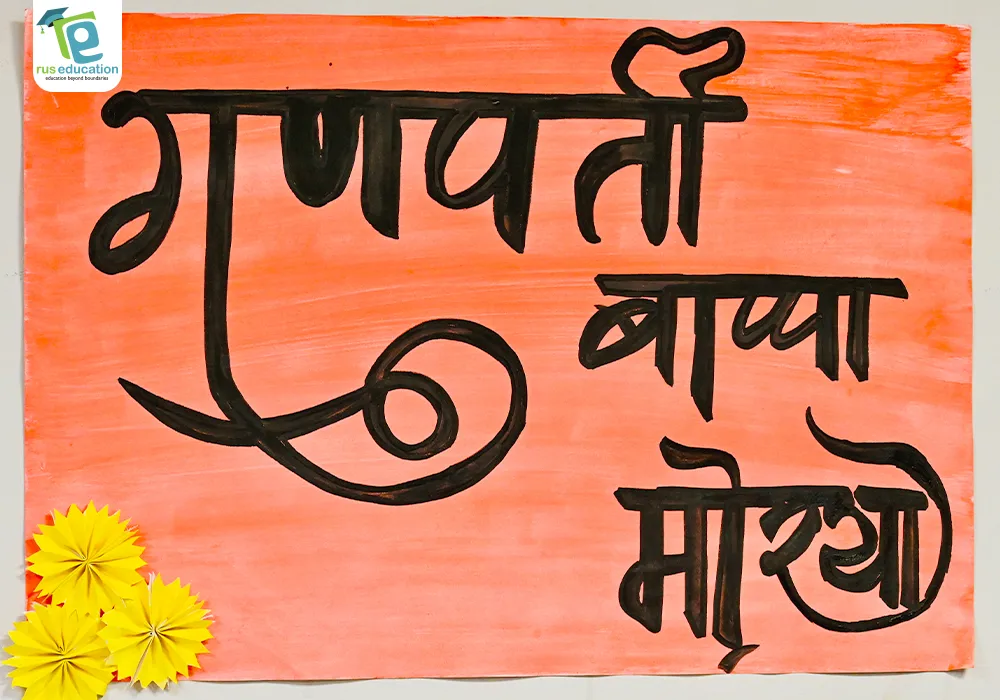 rus education
education beyond boundaries
गणपती
बाप्पा
मोरया